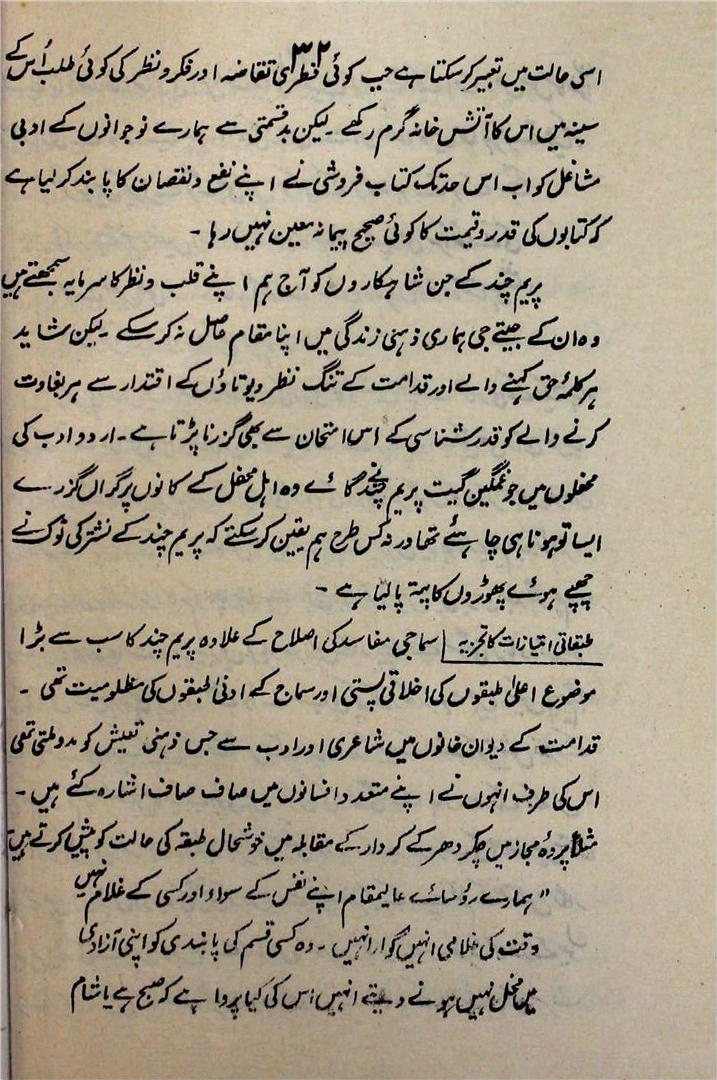 ۳۲
اسی حالت میں تعبیر کر سکتا ہے جب کوئی فطری تقاضہ اور فکر و نظر کی کوئی طلب اُس کے
سینہ میں اس کا آتش خانہ گرم رکھے ۔ لیکن بدقسمتی سے ہمارے نوجوانوں کے ادبی
مشاغل کو اب اس حد تک کتاب فروشی نے اپنے نفع و نقصان کا پابند کر لیا ہے
کہ کتابوں کی قدر و قیمت کا کوئی صحیح پیمانہ معین نہیں رہا ۔
پریم چند کے جن شاہکاروں کو آج ہم اپنے قلب و نظر کا سرمایہ سمجھتے ہیں
وہ ان کے جیتے جی ہماری ذہنی زندگی میں اپنا مقام حاصل نہ کر سکے ۔ لیکن شاید
ہر کلمۂ حق کہنے والے اور قدامت کے تنگ نظر دیوتاؤں کے اقتدار سے ہر بغاوت
کرنے والے کو قدر شناسی کے اس امتحان سے بھی گزرنا پڑتا ہے ۔ اردو ادب کی
محفلوں میں جو غمگین گیت پریم چند نے گائے وہ اہل محفل کے کانوں پر گراں گزرے
ایسا تو ہونا ہی چاہئے تھا ورنہ کس طرح ہم یقین کر سکتے کہ پریم چند کے نشتر کی نوک نے
چھپے ہوئے پھوڑوں کا پتہ پا لیا ہے ۔
طبقاتی امتیازات کا تجزیہ سماجی مفاسد کی اصلاح کے علاوہ پریم چند کا سب سے بڑا
موضوع اعلیٰ طبقوں کی اخلاقی پستی اور سماج کے ادنیٰ طبقوں کی مظلومیت تھی ۔
قدامت کے دیوان خانوں میں شاعری اور ادب سے جس ذہنی تعیش کو مدد ملتی تھی
اس کی طرف انہوں نے اپنے متعدد افسانوں میں صاف صاف اشارہ کئے ہیں ۔
مثلاً پردۂ مجاز میں چکر دھر کے کردار کے مقابلہ میں خوشحال طبقہ کی حالت کو پیش کرتے ہیں
" ہمارے رؤسائے عالیمقام اپنے نفس کے سواء اور کسی کے غلام نہیں
وقت کی غلامی انہیں گوارا نہیں ۔ وہ کسی قسم کی پابندی کو اپنی آزادی
میں مخل نہیں ہونے دیتے انہیں اس کی کیا پروا ہے کہ صبح ہے یا شام